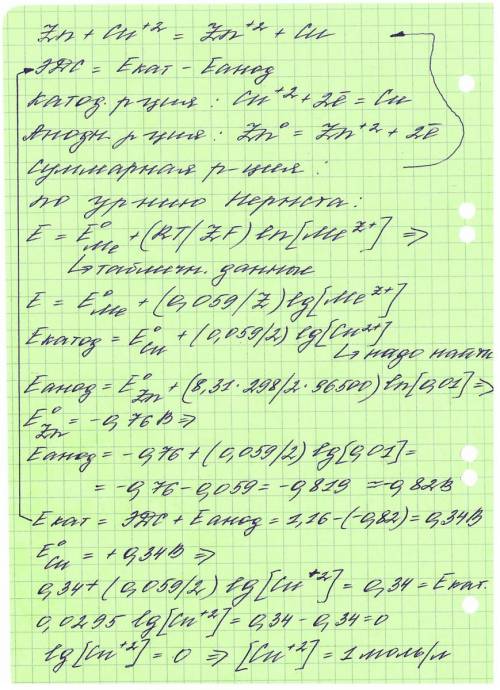 Zn + Cu⁺² = Zn⁺² + Cu
ЭДС = Екат - Еанод
Катод. р-ция: Cu⁺² + 2ē = Cu
Анодн. р-ция: Zn⁰ = Zn⁺² + 2ē
Суммарная р-ция:
по ур-нию Нернста:
E = E⁰Me + (RT/ZF) ln[Me^Z+] ⇒
↳ табличн. данные
E = E⁰Me + (0,059/Z) lg[Me^Z+]
Eкатод = E⁰Cu + (0,059/2) lg[Cu²⁺]
↳ надо найти
Eанод = E⁰Zn + (8,31·298/2·96500) ln[0,01] ⇒
E⁰Zn = -0,76 В ⇒
Еанод = -0,76 + (0,059/2) lg[0,01] =
= -0,76 - 0,059 = -0,819 = -0,82В
Екат = ЭДС + Еанод = 1,16 - (-0,82) = 0,34В
E⁰Cu = +0,34В ⇒
0,34 + (0,059/2) lg[Cu⁺²] = 0,34 = Екат.
0,0295 lg[Cu⁺²] = 0,34 - 0,34 = 0
lg[Cu⁺²] = 0 ⇒ [Cu⁺²] = 1 моль/л